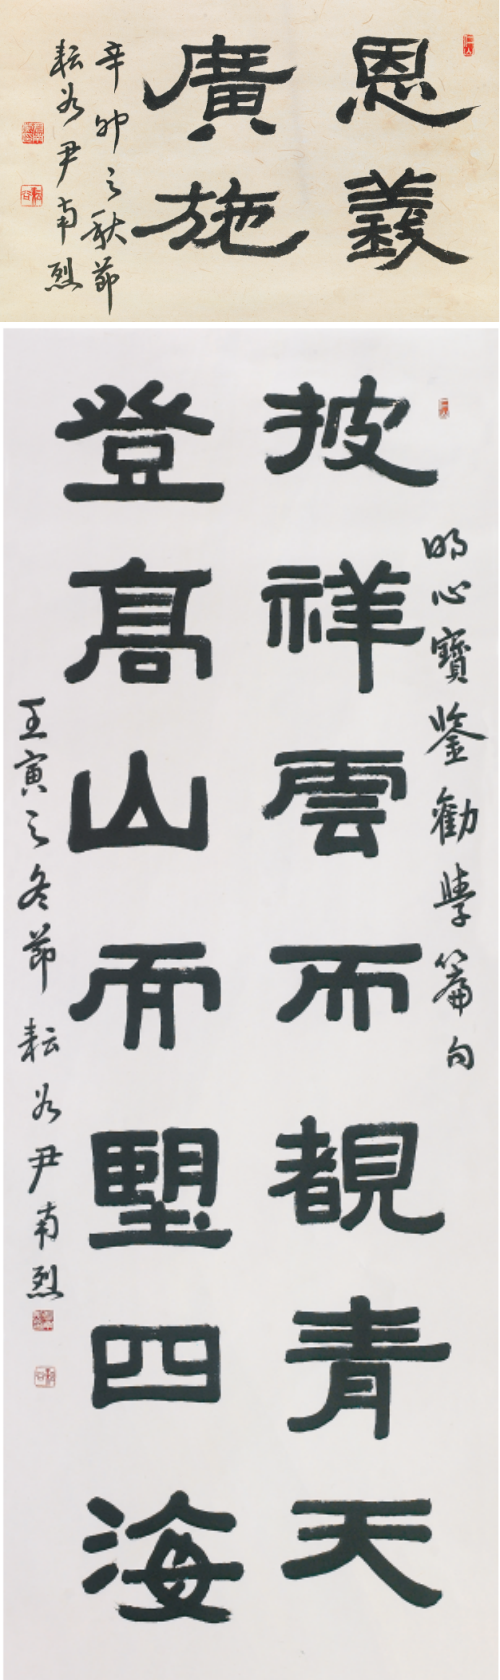 恩義
廣施
辛卯之秋節
耘谷尹南烈
明心寶鑒勸學篇句
披祥雲而覩青天
登高山而望四海
壬寅之冬節 耘谷尹南烈